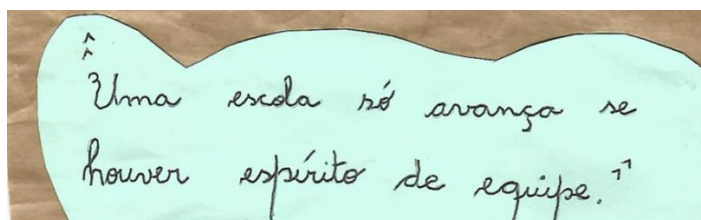 "Uma escola só avança se
houver espírito de equipe."